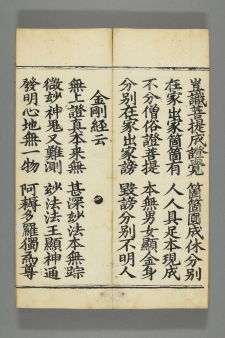 豈識菩提成證覺 箇箇圓成休分別
在家出家箇箇有 人人具足本現成
不分僧俗證菩提 本無男女顯金身
分別在家出家謗 毀謗分別不明人
金剛經云
無上證真本来無 甚深妙法本無踪
微妙神鬼又難測 玅法法王顯神通
發明心地無一物 阿耨多羅獨為尊